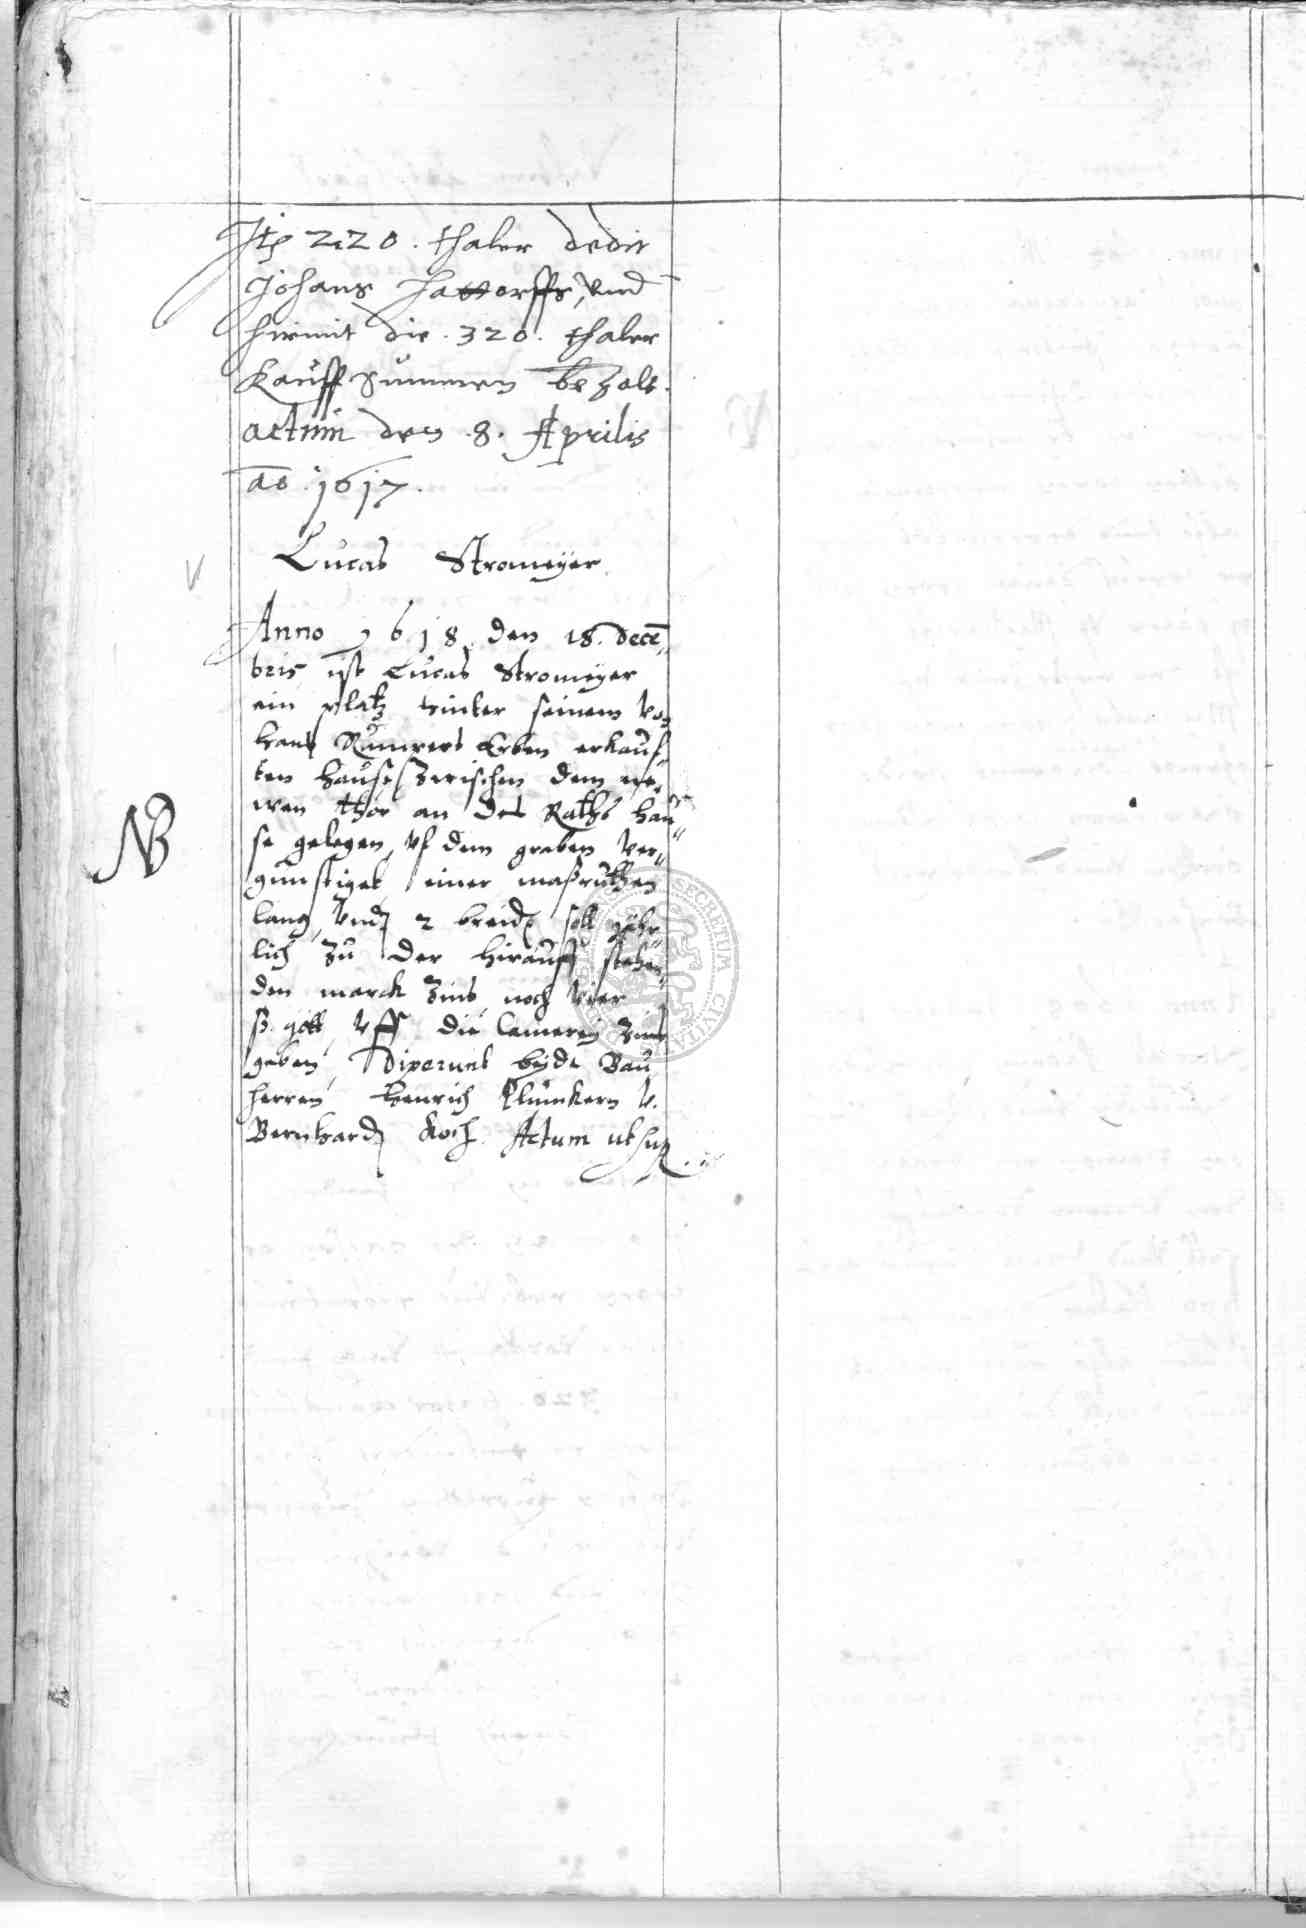 Itz 220. thaler dedit
Johans Hattorff, und
hiermit die. 320. thaler
Kauff Summen bezalt.
actum den .8. Aprilis
ao. 1617.
Lucas Stromeyer.
Anno 1618. den 18. decē„
bris ist Lucas Stromeyer
ein platz hinter seinem von
Hans Erben erkauf„
ten Hause zwischen dem
thor an des Raths Hau„
NB
se gelegen, uf dem graben ver„
gunstiget einer maßruthen
lang, Und 2 breid, soll jähr„
lich zu der hirauff stehen„
den marck Zins noch vier
ß. gött. Uff die Camerey Zins
geben, Dixerunt beyde Bau
herren Henrich Pluimkern v.
Bernhard Koch. Actum ut sup.
SECRETUM CIVITA